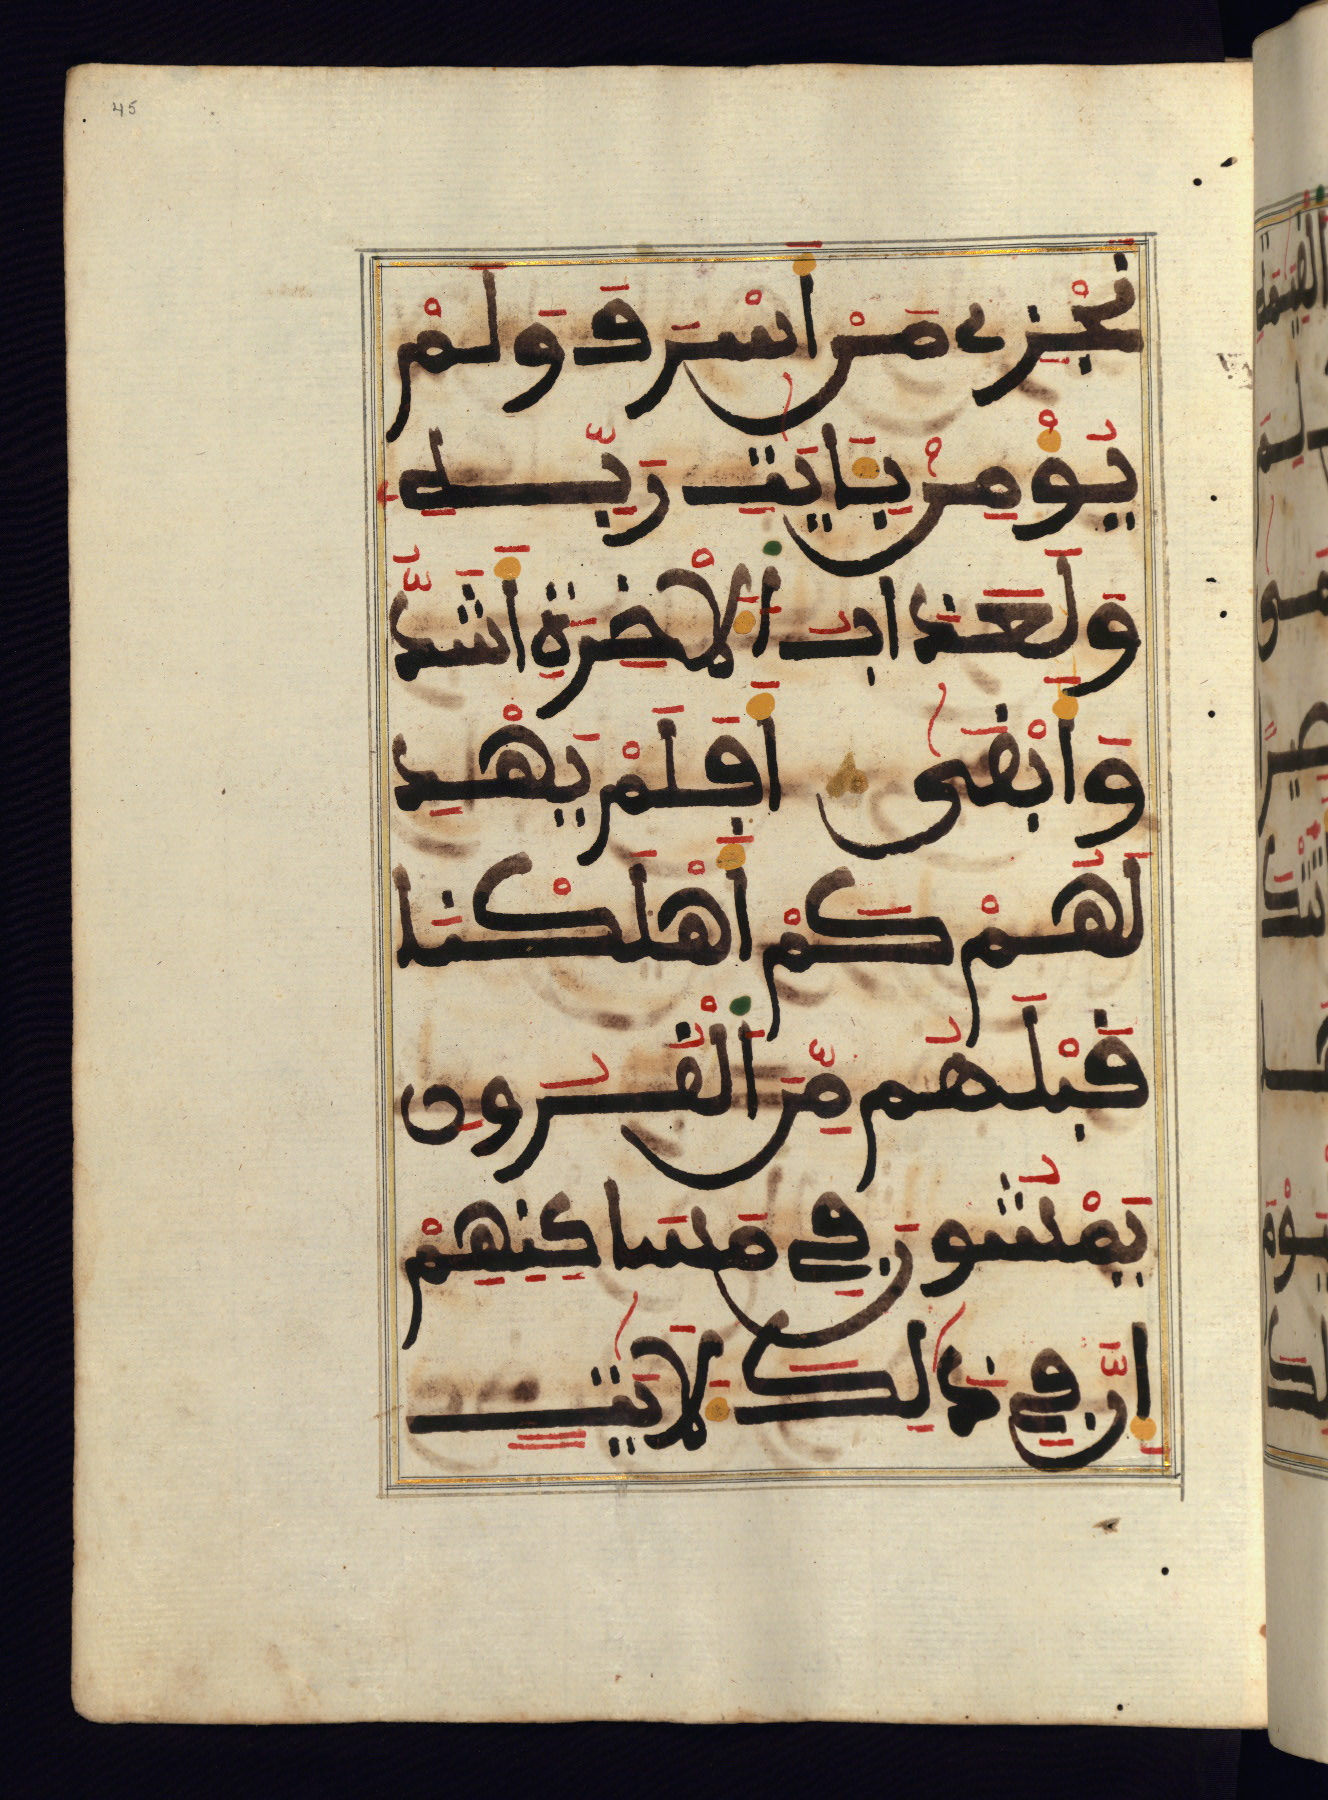 45
نَجْزِے مَنْ أَسْرَفَ وَلَمْ
يُؤْمِنْ بِـَٔايَٰتِ رَبِّهِۦ
وَلَعَذَابُ اَ۬لْأَخِرَةِ أَشَدُّ
وَأَبْقَىٰ أَفَلَمْ يَهْدِ
لَهُمْ كَمْ أَهْلَكْنَا
قَبْلَهُم مِّنَ اَ۬لْقُرُونِ
يَمْشُونَ فِي مَسَاكِنِهِمْ
إِنَّ فِي ذَٰلِكَ لَأَيَٰتٍ